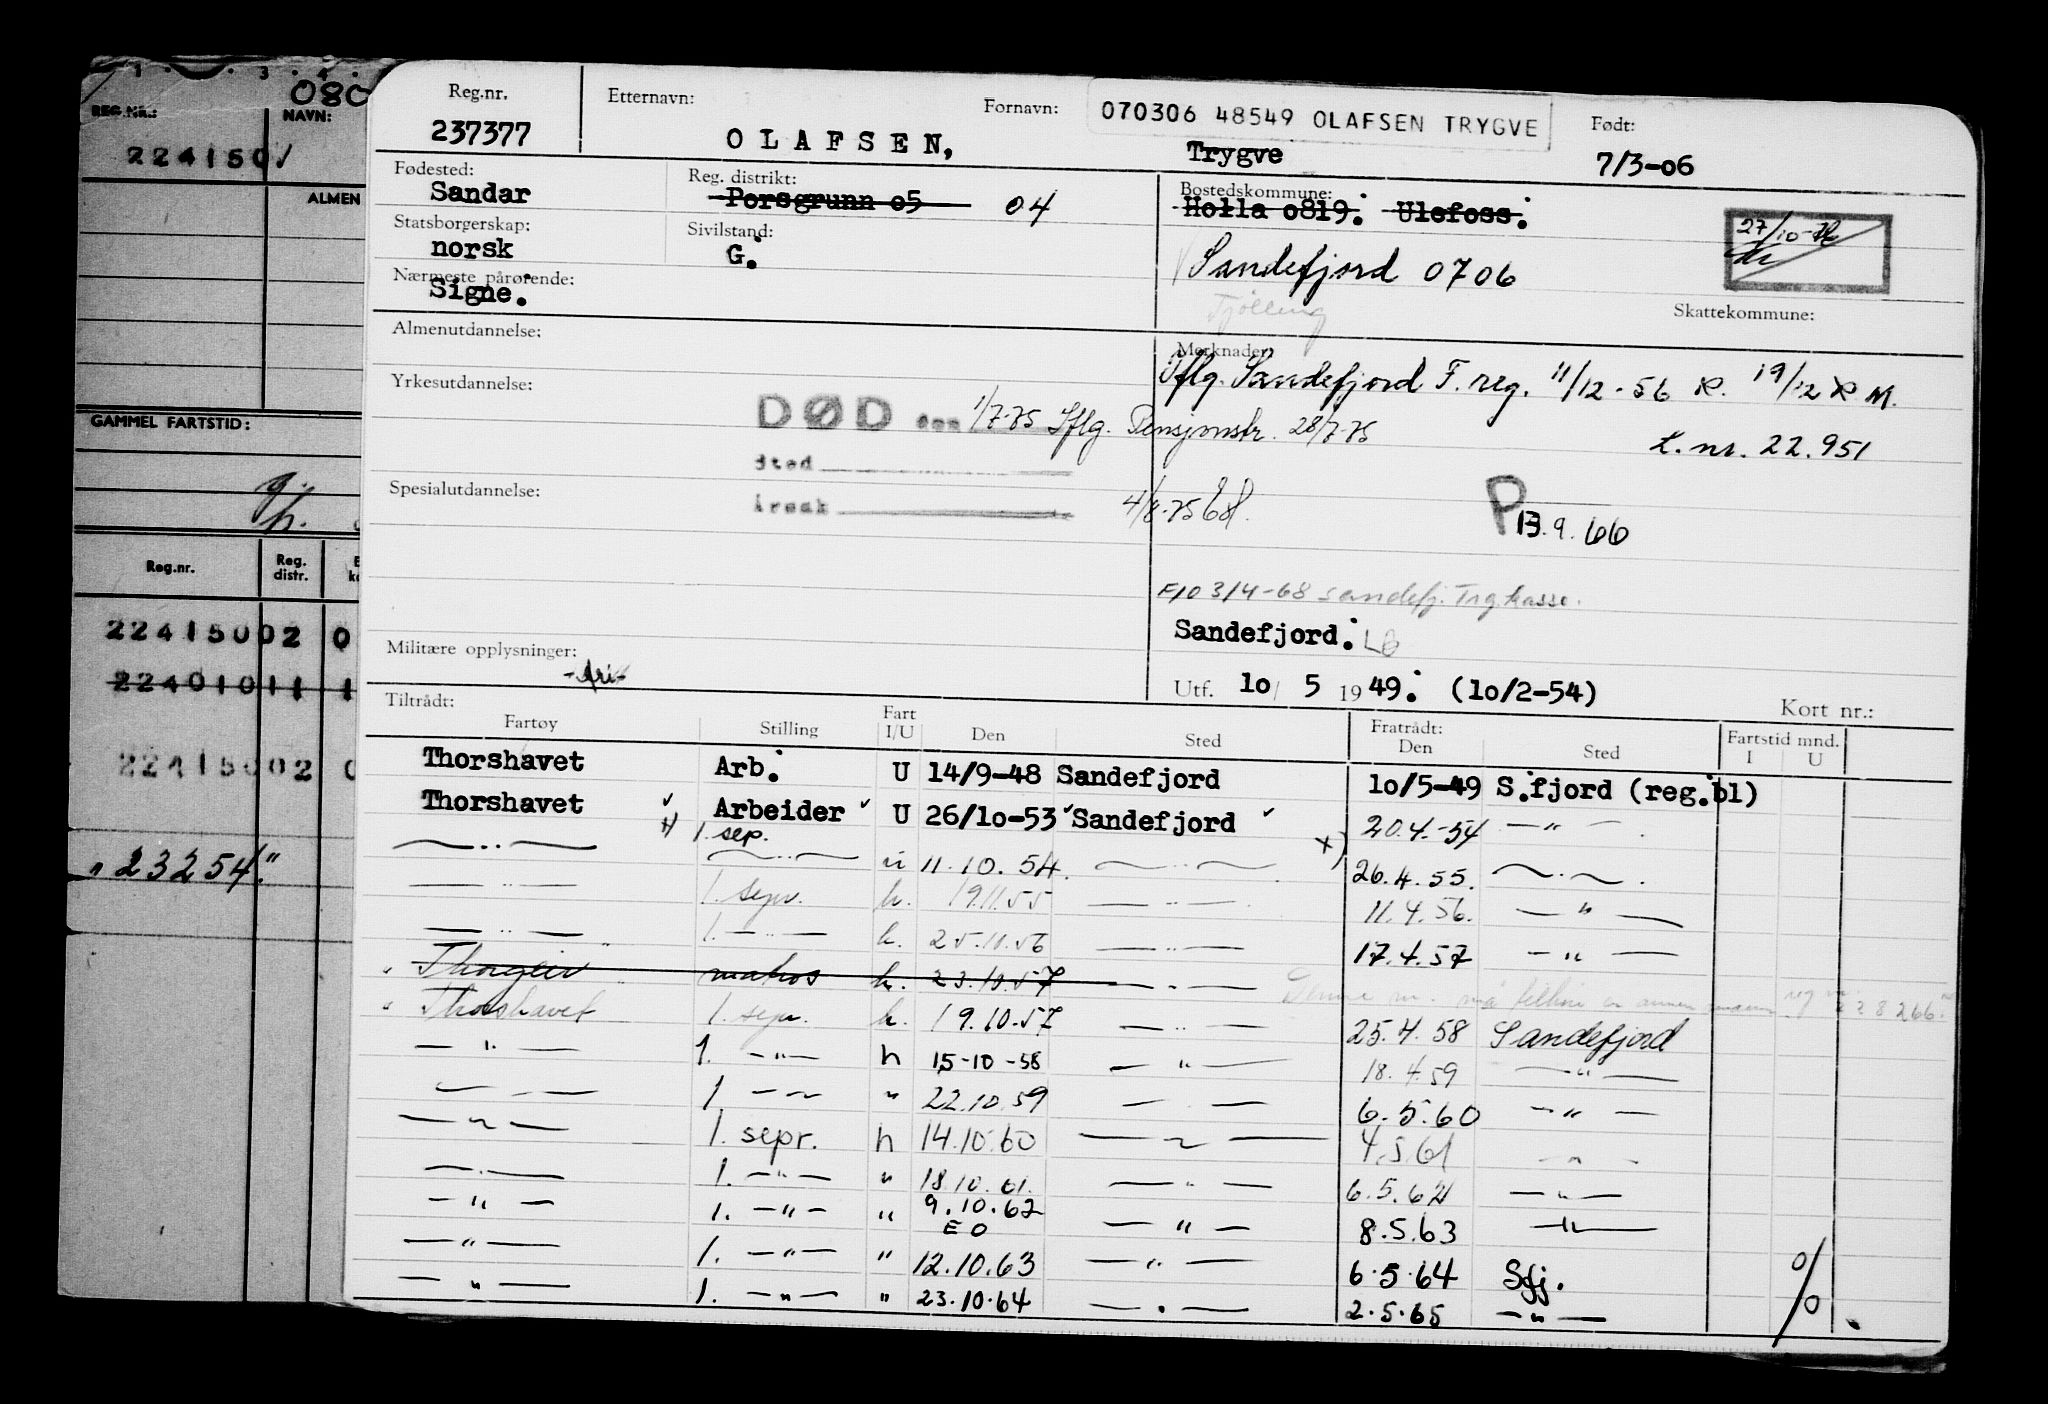 1 . . 3 . 4 .
080
REG.NR.: NAVN:
224150
ALMEN
GAMMEL FARTSTID:
Reg.nr. Reg. distr.
22415002 0
22401011 1
22415002 0
" 23254."
Reg.nr. Etternavn: Fornavn: 070306 48549 OLAFSEN TRYGVE Født:
237377 OLAFSEN, Trygve 7/3-06
Fødested: Reg. distrikt: Bostedskommune:
Sandar Porsgrunn o5 04 Holla o819. Ulefoss.
Statsborgerskap: Sivilstand:
norsk G. Sandefjord 0706
Nærmeste pårørende:
Signe. Tjølling
Skattekommune:
Almenutdannelse: Merknader:
Iflg. Sandefjord F. reg. 11/12-56 R. 19/12 R M.
Yrkesutdannelse:
DØD den 1/7-75 Iflg. Pensjonstr. 28/7-75
L. nr. 22.951
Sted
Spesialutdannelse:
Årsak 4/8-75
P 13.9.66
E/O 3/4-68 Sandefj. Trg.kasse.
Sandefjord. LG
Militære opplysninger:
Utf. 1o/ 5 1949. (1o/2-54) Kort nr.:
Tiltrådt: Fratrådt: Fartstid mnd.
Fartøy Stilling Fart I/U Den Sted Den Sted I U
Thorshavet Arb. U 14/9-48 Sandefjord 1o/5-49 S.fjord (reg.bl)
Thorshavet Arbeider U 26/1o-53 Sandefjord 20.4.-54 — " —
x) 1. sep.
— " — — " — u 11.10.54. — " — x) 26.4.55. — " —
— " — 1. sepr. h. 19.11.55 — " — 11.4.56. — " —
— " — 1. — " — h. 25.10.56 — " — 17.4.57 — " —
" Thorgeir " matros h. 23.10.57 — " — Denne m. må tilhøre en annen mann reg nr. 228266.
" Thorshavet 1. sepr. h. 19.10.57 — " — 25.4.58 Sandefjord
— " — 1. — " — h 15-10-58 — " — 18.4.59 — " —
— " — 1 — " — " 22.10.59 — " — 6.5.60 — " —
— " — 1. sepr. h 14.10.60 — " — 4.5.61 — " —
— " — 1. — " — " 18.10.61. — " — 6.5.62 — " —
— " — 1. — " — " 9.10.62 — " — 8.5.63 — " —
EO
— " — 1. — " — " 12.10.63 — " — 6.5.64 Sfj. 0
— " — 1. — " — " 23.10.64 — " — 2.5.65 — " — 0